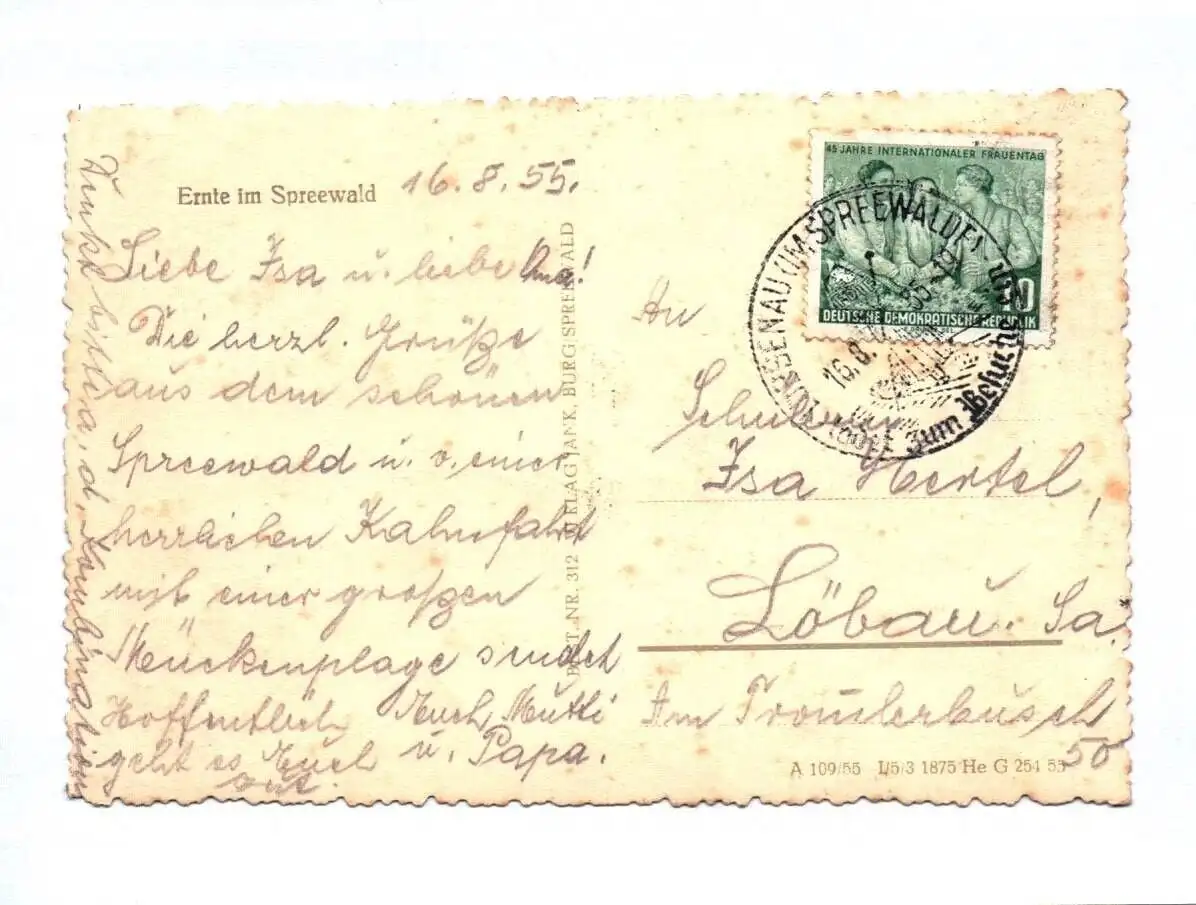 Ernte im Spreewald 16.8.55.
Liebe Isa u. liebe Oma!
Die herzl. Grüße
aus dem schönen
Spreewald u. v. einer
herrlichen Kahnfahrt
mit einer großen
Mückenplage sendet
Euch Mutti
u. Papa.
Hoffentlich
geht es Euch
gut.
bitte a. d.
BEST. NR. 312 VERLAG JANK, BURG SPREEWALD
45 JAHRE INTERNATIONALER FRAUENTAG
10
DEUTSCHE DEMOKRATISCHE REPUBLIK
LÜBBENAU (UMSPREEWALDE)
16.8.55-19
An
Schülerin
Isa Hertel,
Löbau. Sa.
Am
50
A 109/55 I/5/3 1875 He G 254 55